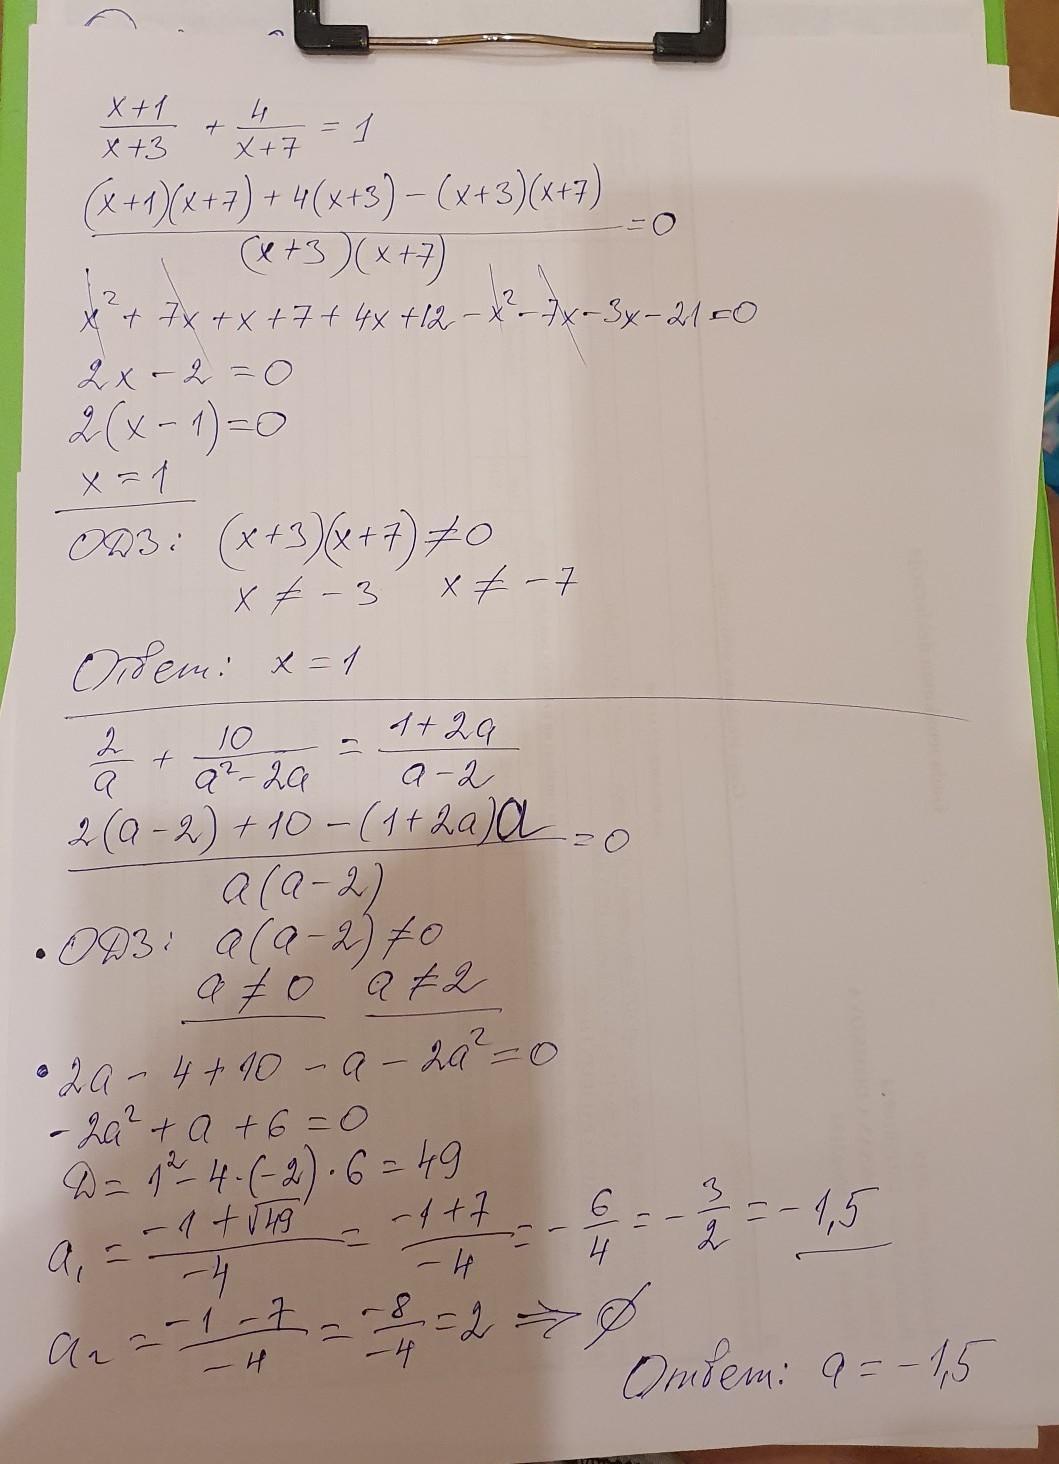 (x+1)/(x+3) + 4/(x+7) = 1
((x+1)(x+7) + 4(x+3) - (x+3)(x+7))/((x+3)(x+7)) = 0
x² + 7x + x + 7 + 4x + 12 - x² - 7x - 3x - 21 = 0
2x - 2 = 0
2(x - 1) = 0
x = 1
ОДЗ: (x+3)(x+7) ≠ 0
x ≠ -3 x ≠ -7
Ответ: x = 1
2/a + 10/(a² - 2a) = (1+2a)/(a-2)
(2(a-2) + 10 - (1+2a)a)/(a(a-2)) = 0
• ОДЗ: a(a-2) ≠ 0
a ≠ 0 a ≠ 2
• 2a - 4 + 10 - a - 2a² = 0
-2a² + a + 6 = 0
D = 1² - 4·(-2)·6 = 49
a₁ = (-1+√49)/(-4) = (-1+7)/(-4) = -6/4 = -3/2 = -1,5
a₂ = (-1-7)/(-4) = (-8)/(-4) = 2 ⇒ ∅
Ответ: a = -1,5